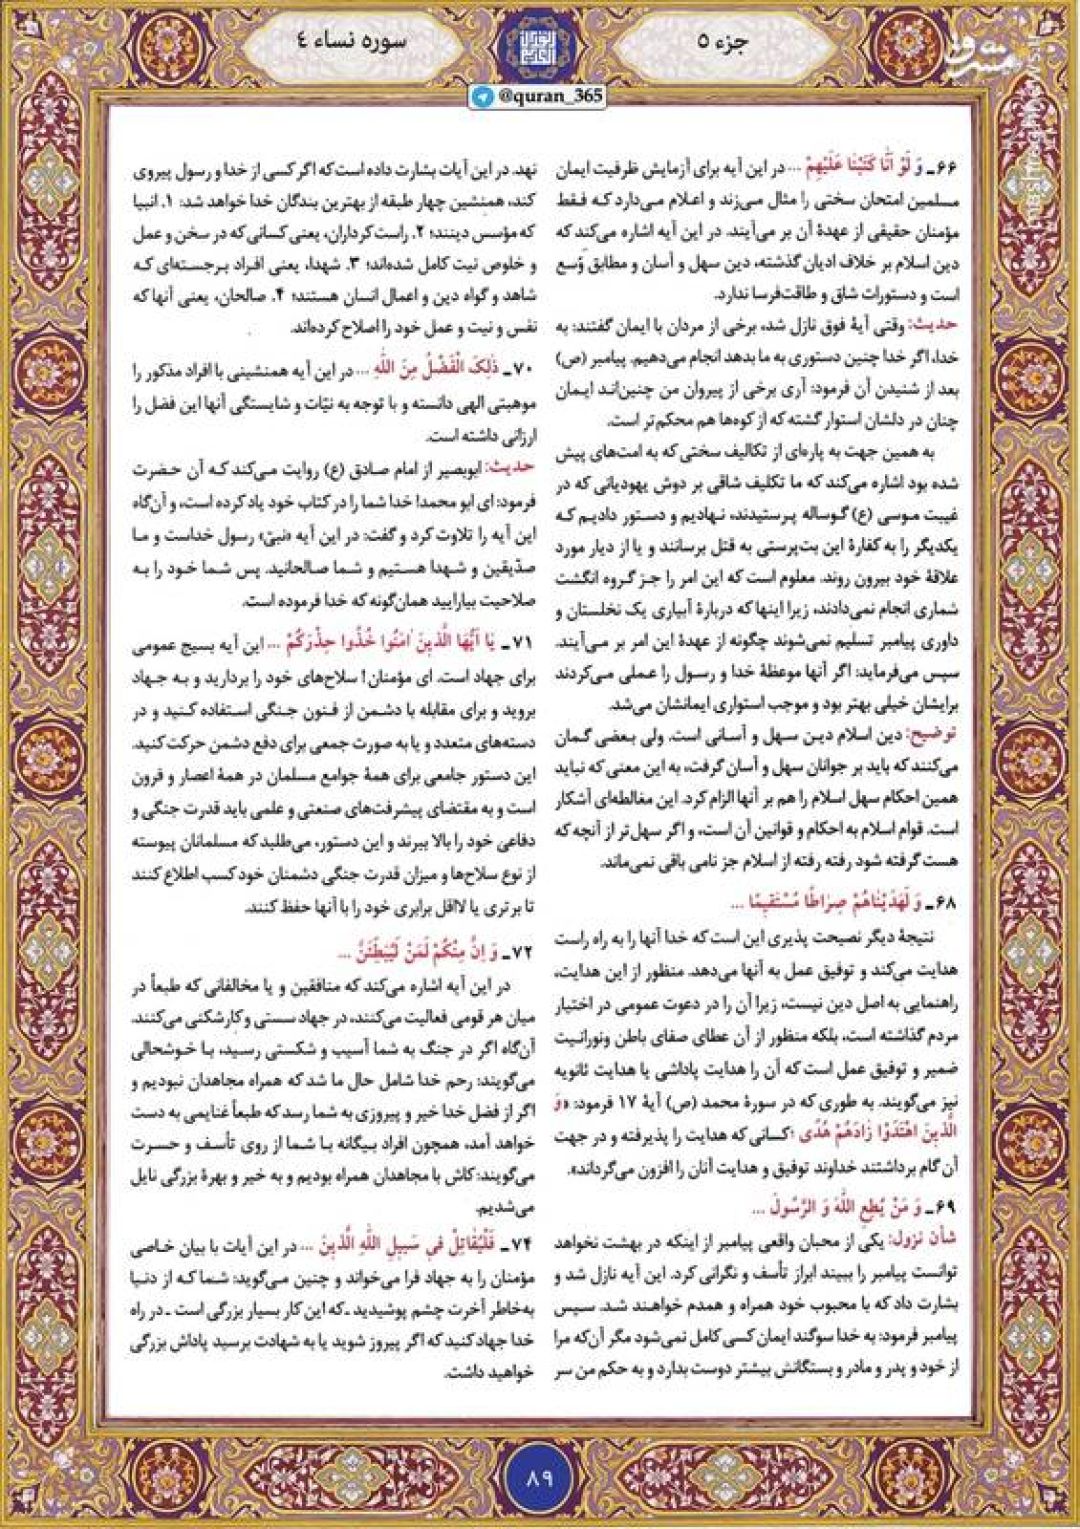 جزء ۵
سوره نساء ٤
@quran_365
مشرق
۶۶ـ وَ لَوْ اَنَّا كَتَبْنَا عَلَيْهِمْ ... در این آیه برای آزمایش ظرفیت ایمان
مسلمین امتحان سختی را مثال می‌زند و اعلام می‌دارد که فقط
مؤمنان حقیقی از عهدهٔ آن بر می‌آیند. در این آیه اشاره می‌کند که
دین اسلام بر خلاف ادیان گذشته، دین سهل و آسان و مطابق وُسع
است و دستورات شاق و طاقت‌فرسا ندارد.
حدیث: وقتی آیهٔ فوق نازل شد، برخی از مردان با ایمان گفتند: به
خدا، اگر خدا چنین دستوری به ما بدهد انجام می‌دهیم. پیامبر (ص)
بعد از شنیدن آن فرمود: آری برخی از پیروان من چنین‌اند ایمان
چنان در دلشان استوار گشته که از کوه‌ها هم محکم‌تر است.
به همین جهت به پاره‌ای از تکالیف سختی که به امت‌های پیش
شده بود اشاره می‌کند که ما تکلیف شاقی بر دوش یهودیانی که در
غیبت موسی (ع) گوساله پرستیدند، نهادیم و دستور دادیم که
یکدیگر را به کفارهٔ این بت‌پرستی به قتل برسانند و یا از دیار مورد
علاقهٔ خود بیرون روند. معلوم است که این امر را جز گروه انگشت
شماری انجام نمی‌دادند، زیرا اینها که دربارهٔ آبیاری یک نخلستان و
داوری پیامبر تسلیم نمی‌شوند چگونه از عهدهٔ این امر بر می‌آیند.
سپس می‌فرماید: اگر آنها موعظهٔ خدا و رسول را عملی می‌کردند
برایشان خیلی بهتر بود و موجب استواری ایمانشان می‌شد.
توضیح: دین اسلام دین سهل و آسانی است. ولی بعضی گمان
می‌کنند که باید بر جوانان سهل و آسان گرفت، به این معنی که نباید
همین احکام سهل اسلام را هم بر آنها الزام کرد. این مغالطه‌ای آشکار
است. قوام اسلام به احکام و قوانین آن است، و اگر سهل‌تر از آنچه که
هست گرفته شود رفته رفته از اسلام جز نامی باقی نمی‌ماند.
۶۸ـ وَ لَهَدَيْنَاهُمْ صِرَاطًا مُسْتَقِيمًا ...
نتیجهٔ دیگر نصیحت پذیری این است که خدا آنها را به راه راست
هدایت می‌کند و توفیق عمل به آنها می‌دهد. منظور از این هدایت،
راهنمایی به اصل دین نیست، زیرا آن را در دعوت عمومی در اختیار
مردم گذاشته است، بلکه منظور از آن عطای صفای باطن ونورانیت
ضمیر و توفیق عمل است که آن را هدایت پاداشی یا هدایت ثانویه
نیز می‌گویند. به طوری که در سورهٔ محمد (ص) آیهٔ ۱۷ فرمود: «وَ
الَّذِينَ اهْتَدَوْا زَادَهُمْ هُدًى ؛کسانی که هدایت را پذیرفته و در جهت
آن گام برداشتند خداوند توفیق و هدایت آنان را افزون می‌گرداند».
۶۹ـ وَ مَنْ يُطِعِ اللّٰهَ وَ الرَّسُولَ ...
شأن نزول: یکی از محبان واقعی پیامبر از اینکه در بهشت نخواهد
توانست پیامبر را ببیند ابراز تأسف و نگرانی کرد. این آیه نازل شد و
بشارت داد که با محبوب خود همراه و همدم خواهند شد. سپس
پیامبر فرمود: به خدا سوگند ایمان کسی کامل نمی‌شود مگر آن‌که مرا
از خود و پدر و مادر و بستگانش بیشتر دوست بدارد و به حکم من سر
نهد. در این آیات بشارت داده است که اگر کسی از خدا و رسول پیروی
کند، همنشین چهار طبقه از بهترین بندگان خدا خواهد شد: ۱. انبیا
که مؤسس دینند؛ ۲. راست کرداران، یعنی کسانی که در سخن و عمل
و خلوص نیت کامل شده‌اند؛ ۳. شهدا، یعنی افراد برجسته‌ای که
شاهد و گواه دین و اعمال انسان هستند؛ ۴. صالحان، یعنی آنها که
نفس و نیت و عمل خود را اصلاح کرده‌اند.
۷۰ـ ذٰلِکَ الْفَضْلُ مِنَ اللّٰهِ ... در این آیه همنشینی با افراد مذکور را
موهبتی الهی دانسته و با توجه به نیّات و شایستگی آنها این فضل را
ارزانی داشته است.
حدیث: ابوبصیر از امام صادق (ع) روایت می‌کند که آن حضرت
فرمود: ای ابو محمد! خدا شما را در کتاب خود یاد کرده است، و آن‌گاه
این آیه را تلاوت کرد و گفت: در این آیه «نبیّ» رسول خداست و ما
صدّیقین و شهدا هستیم و شما صالحانید. پس شما خود را به
صلاحیت بیارایید همان‌گونه که خدا فرموده است.
۷۱ـ يَا اَيُّهَا الَّذِينَ اٰمَنُوا خُذُوا حِذْرَكُمْ ... این آیه بسیج عمومی
برای جهاد است. ای مؤمنان! سلاح‌های خود را بردارید و به جهاد
بروید و برای مقابله با دشمن از فنون جنگی استفاده کنید و در
دسته‌های متعدد و یا به صورت جمعی برای دفع دشمن حرکت کنید.
این دستور جامعی برای همهٔ جوامع مسلمان در همهٔ اعصار و قرون
است و به مقتضای پیشرفت‌های صنعتی و علمی باید قدرت جنگی و
دفاعی خود را بالا ببرند و این دستور، می‌طلبد که مسلمانان پیوسته
از نوع سلاح‌ها و میزان قدرت جنگی دشمنان خود کسب اطلاع کنند
تا برتری یا لااقل برابری خود را با آنها حفظ کنند.
۷۲ـ وَ اِنَّ مِنْكُمْ لَمَنْ لَيُبَطِّئَنَّ ...
در این آیه اشاره می‌کند که منافقین و یا مخالفانی که طبعاً در
میان هر قومی فعالیت می‌کنند، در جهاد سستی و کارشکنی می‌کنند،
آن‌گاه اگر در جنگ به شما آسیب و شکستی رسید، با خوشحالی
می‌گویند: رحم خدا شامل حال ما شد که همراه مجاهدان نبودیم و
اگر از فضل خدا خیر و پیروزی به شما رسد که طبعاً غنایمی به دست
خواهد آمد، همچون افراد بیگانه با شما از روی تأسف و حسرت
می‌گویند: کاش با مجاهدان همراه بودیم و به خیر و بهرهٔ بزرگی نایل
می‌شدیم.
۷۴ـ فَلْيُقَاتِلْ فِي سَبِيلِ اللّٰهِ الَّذِينَ ... در این آیات با بیان خاصی
مؤمنان را به جهاد فرا می‌خواند و چنین می‌گوید: شما که از دنیا
به‌خاطر آخرت چشم پوشیدید ـ که این کار بسیار بزرگی است ـ در راه
خدا جهاد کنید که اگر پیروز شوید یا به شهادت برسید پاداش بزرگی
خواهید داشت.
۸۹